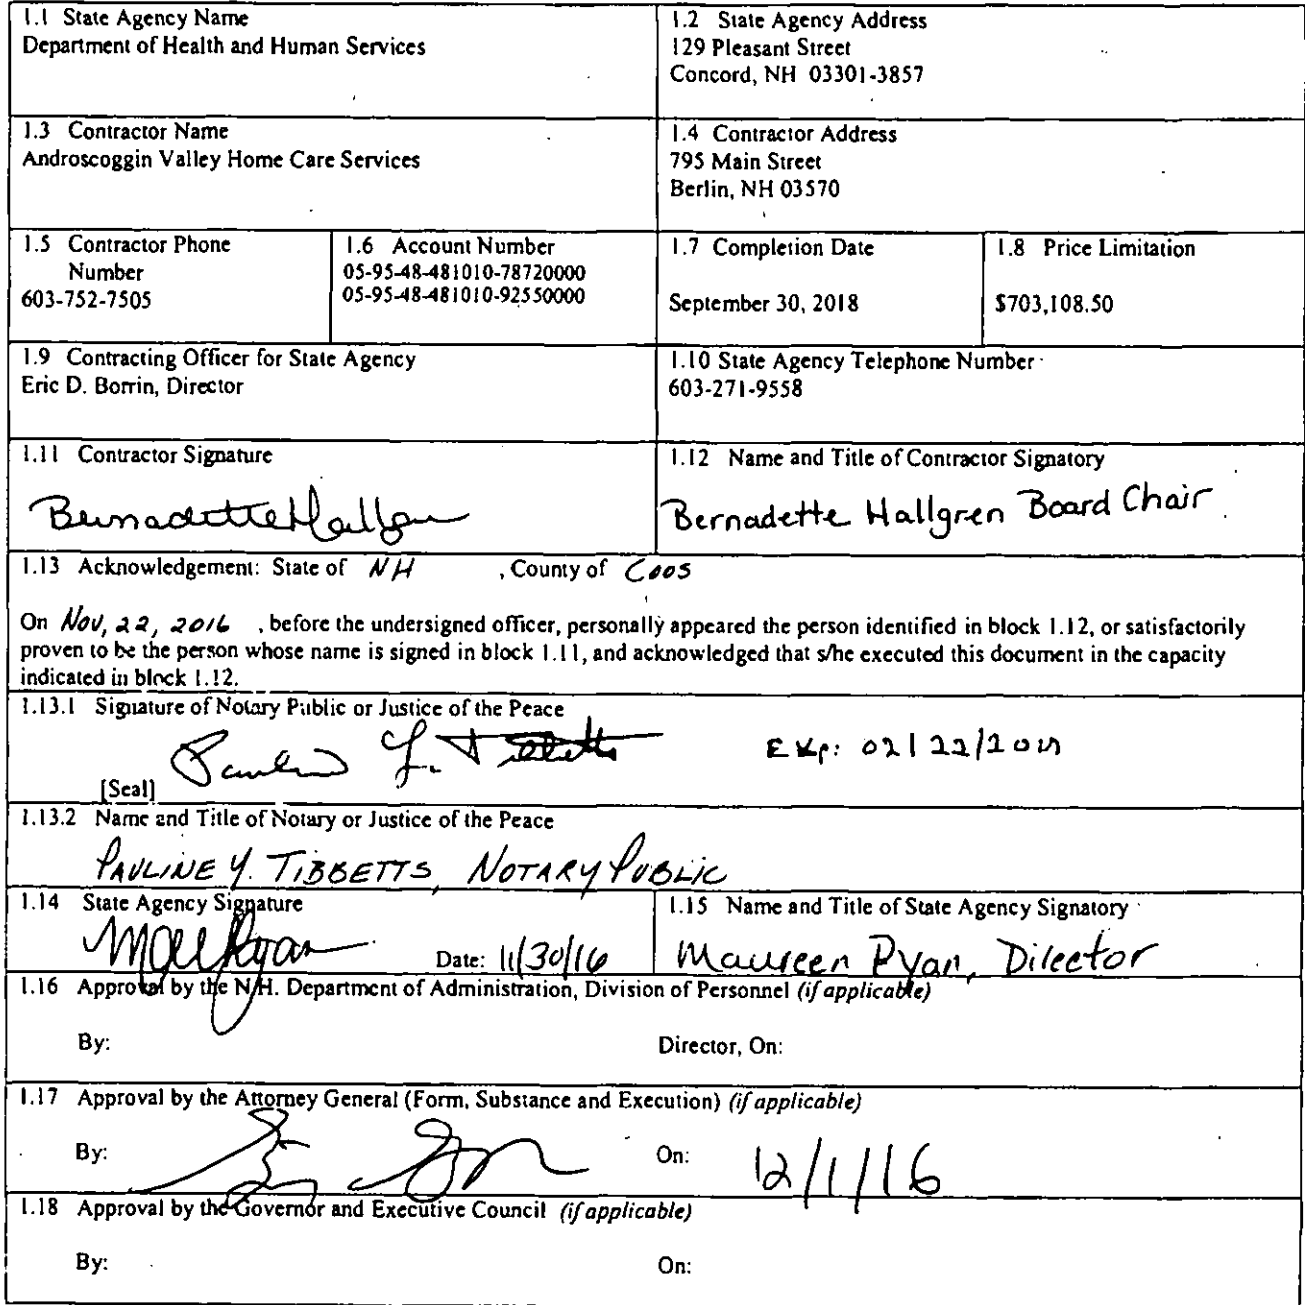 1.1 State Agency Name
Department of Health and Human Services
1.2 State Agency Address
129 Pleasant Street
Concord, NH 03301-3857
1.3 Contractor Name
Androscoggin Valley Home Care Services
1.4 Contractor Address
795 Main Street
Berlin, NH 03570
1.5 Contractor Phone
Number
603-752-7505
1.6 Account Number
05-95-48-481010-78720000
05-95-48-481010-92550000
1.7 Completion Date
September 30, 2018
1.8 Price Limitation
$703,108.50
1.9 Contracting Officer for State Agency
Eric D. Borrin, Director
1.10 State Agency Telephone Number
603-271-9558
1.11 Contractor Signature
Bernadette Hallgren
1.12 Name and Title of Contractor Signatory
Bernadette Hallgren Board Chair
1.13 Acknowledgement: State of NH , County of Coos
On Nov, 22, 2016 , before the undersigned officer, personally appeared the person identified in block 1.12, or satisfactorily
proven to be the person whose name is signed in block 1.11, and acknowledged that s/he executed this document in the capacity
indicated in block 1.12.
1.13.1 Signature of Notary Public or Justice of the Peace
Y. Tibbetts Exp: 02/22/
[Seal]
1.13.2 Name and Title of Notary or Justice of the Peace
PAULINE Y. TIBBETTS, NOTARY PUBLIC
1.14 State Agency Signature
Date: 11/30/16
1.15 Name and Title of State Agency Signatory
Maureen Ryan, Director
1.16 Approval by the N.H. Department of Administration, Division of Personnel (if applicable)
By: Director, On:
1.17 Approval by the Attorney General (Form, Substance and Execution) (if applicable)
By: On: 12/1/16
1.18 Approval by the Governor and Executive Council (if applicable)
By: On: